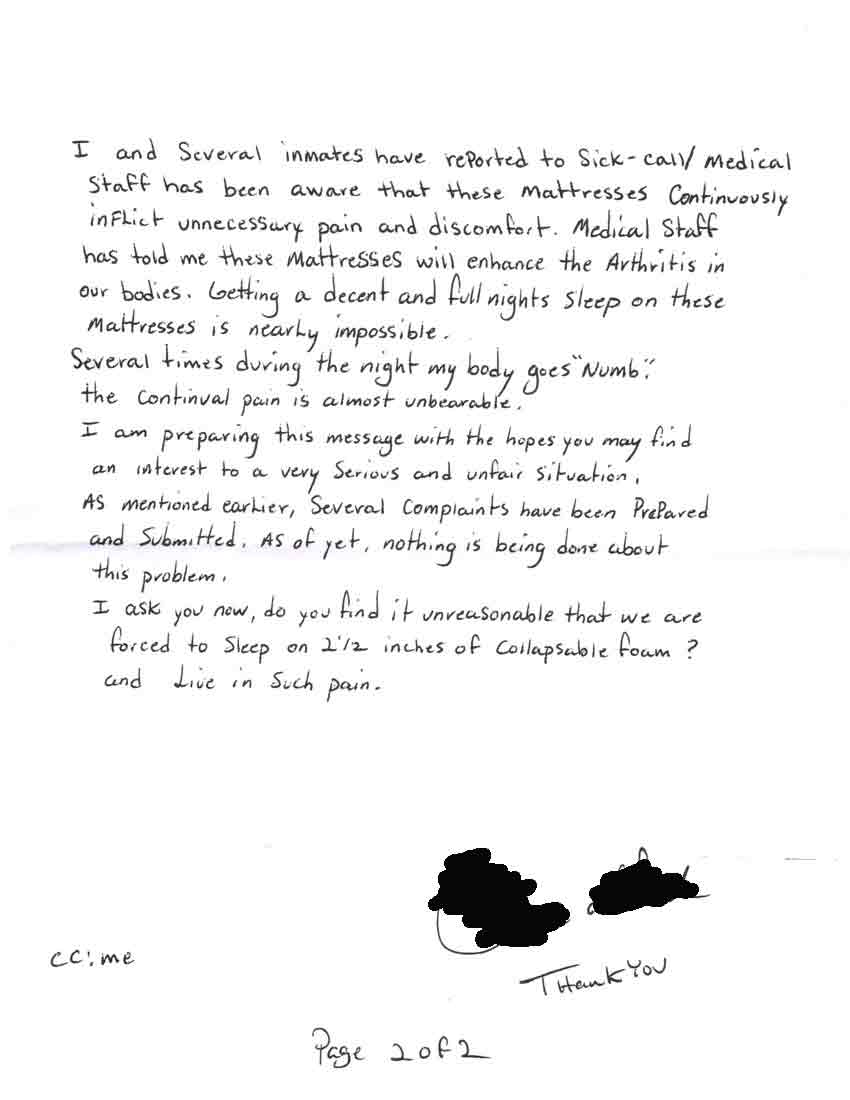 I and Several inmates have reported to Sick-call/ Medical
Staff has been aware that these Mattresses Continuously
inflict unnecessary pain and discomfort. Medical Staff
has told me these Mattresses will enhance the Arthritis in
our bodies. Getting a decent and full nights Sleep on these
Mattresses is nearly impossible.
Several times during the night my body goes "Numb".
the continual pain is almost unbearable.
I am preparing this message with the hopes you may find
an interest to a very Serious and unfair Situation.
As mentioned earlier, Several Complaints have been Prepared
and Submitted. As of yet, nothing is being done about
this problem.
I ask you now, do you find it unreasonable that we are
forced to Sleep on 2 1/2 inches of Collapsable foam ?
and Live in Such pain.
CC: me
Thank You
Page 2 of 2